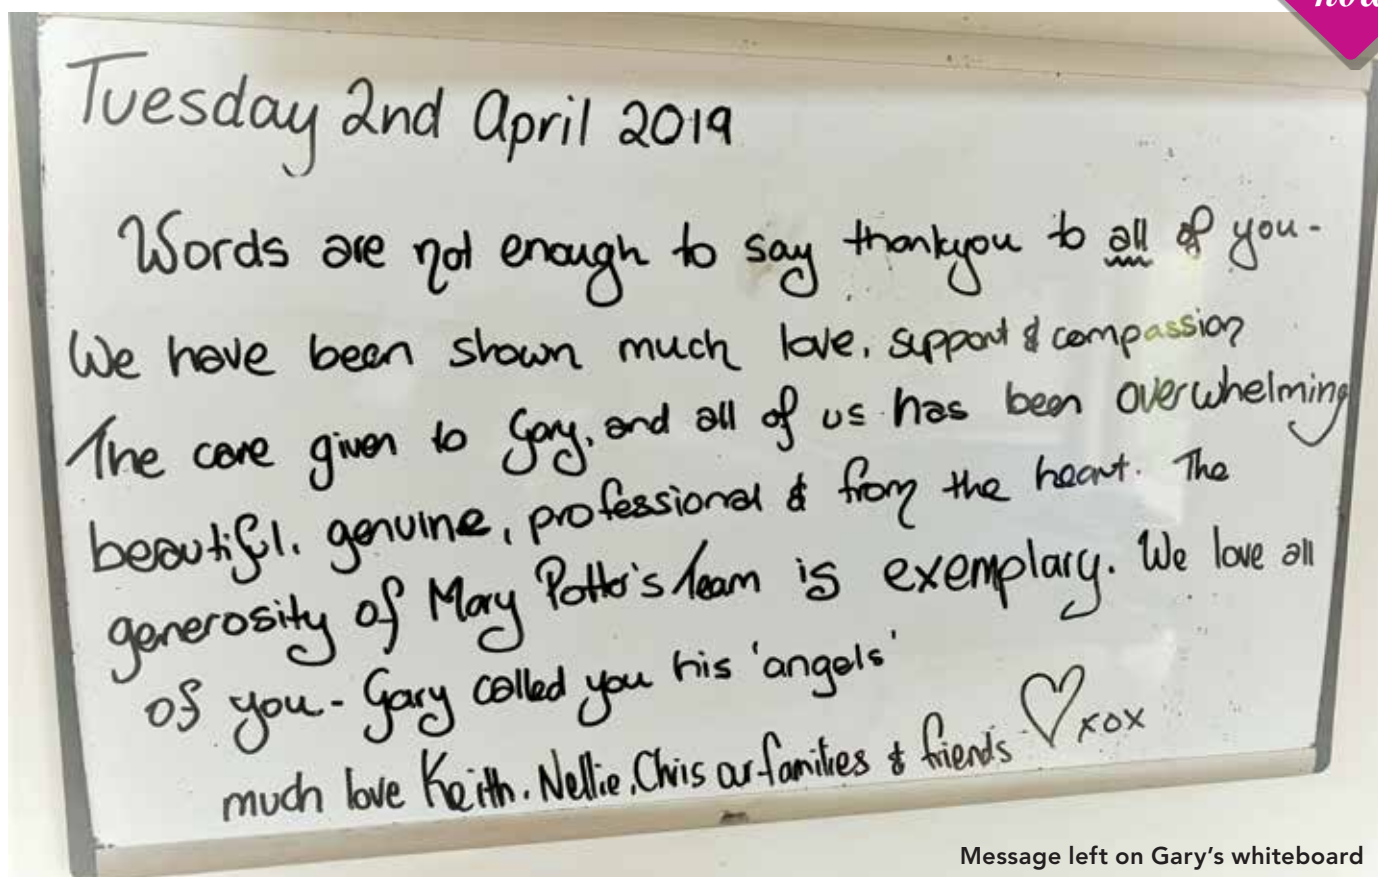 Tuesday 2nd April 2019
Words are not enough to say thankyou to all of you -
We have been shown much love, support & compassion
The care given to Gary, and all of us has been overwhelming
beautiful, genuine, professional & from the heart. The
generosity of Mary Potter's team is exemplary. We love all
of you - Gary called you his 'angels'
much love Keith, Nellie, Chris our families & friends ♡ xox
Message left on Gary's whiteboard